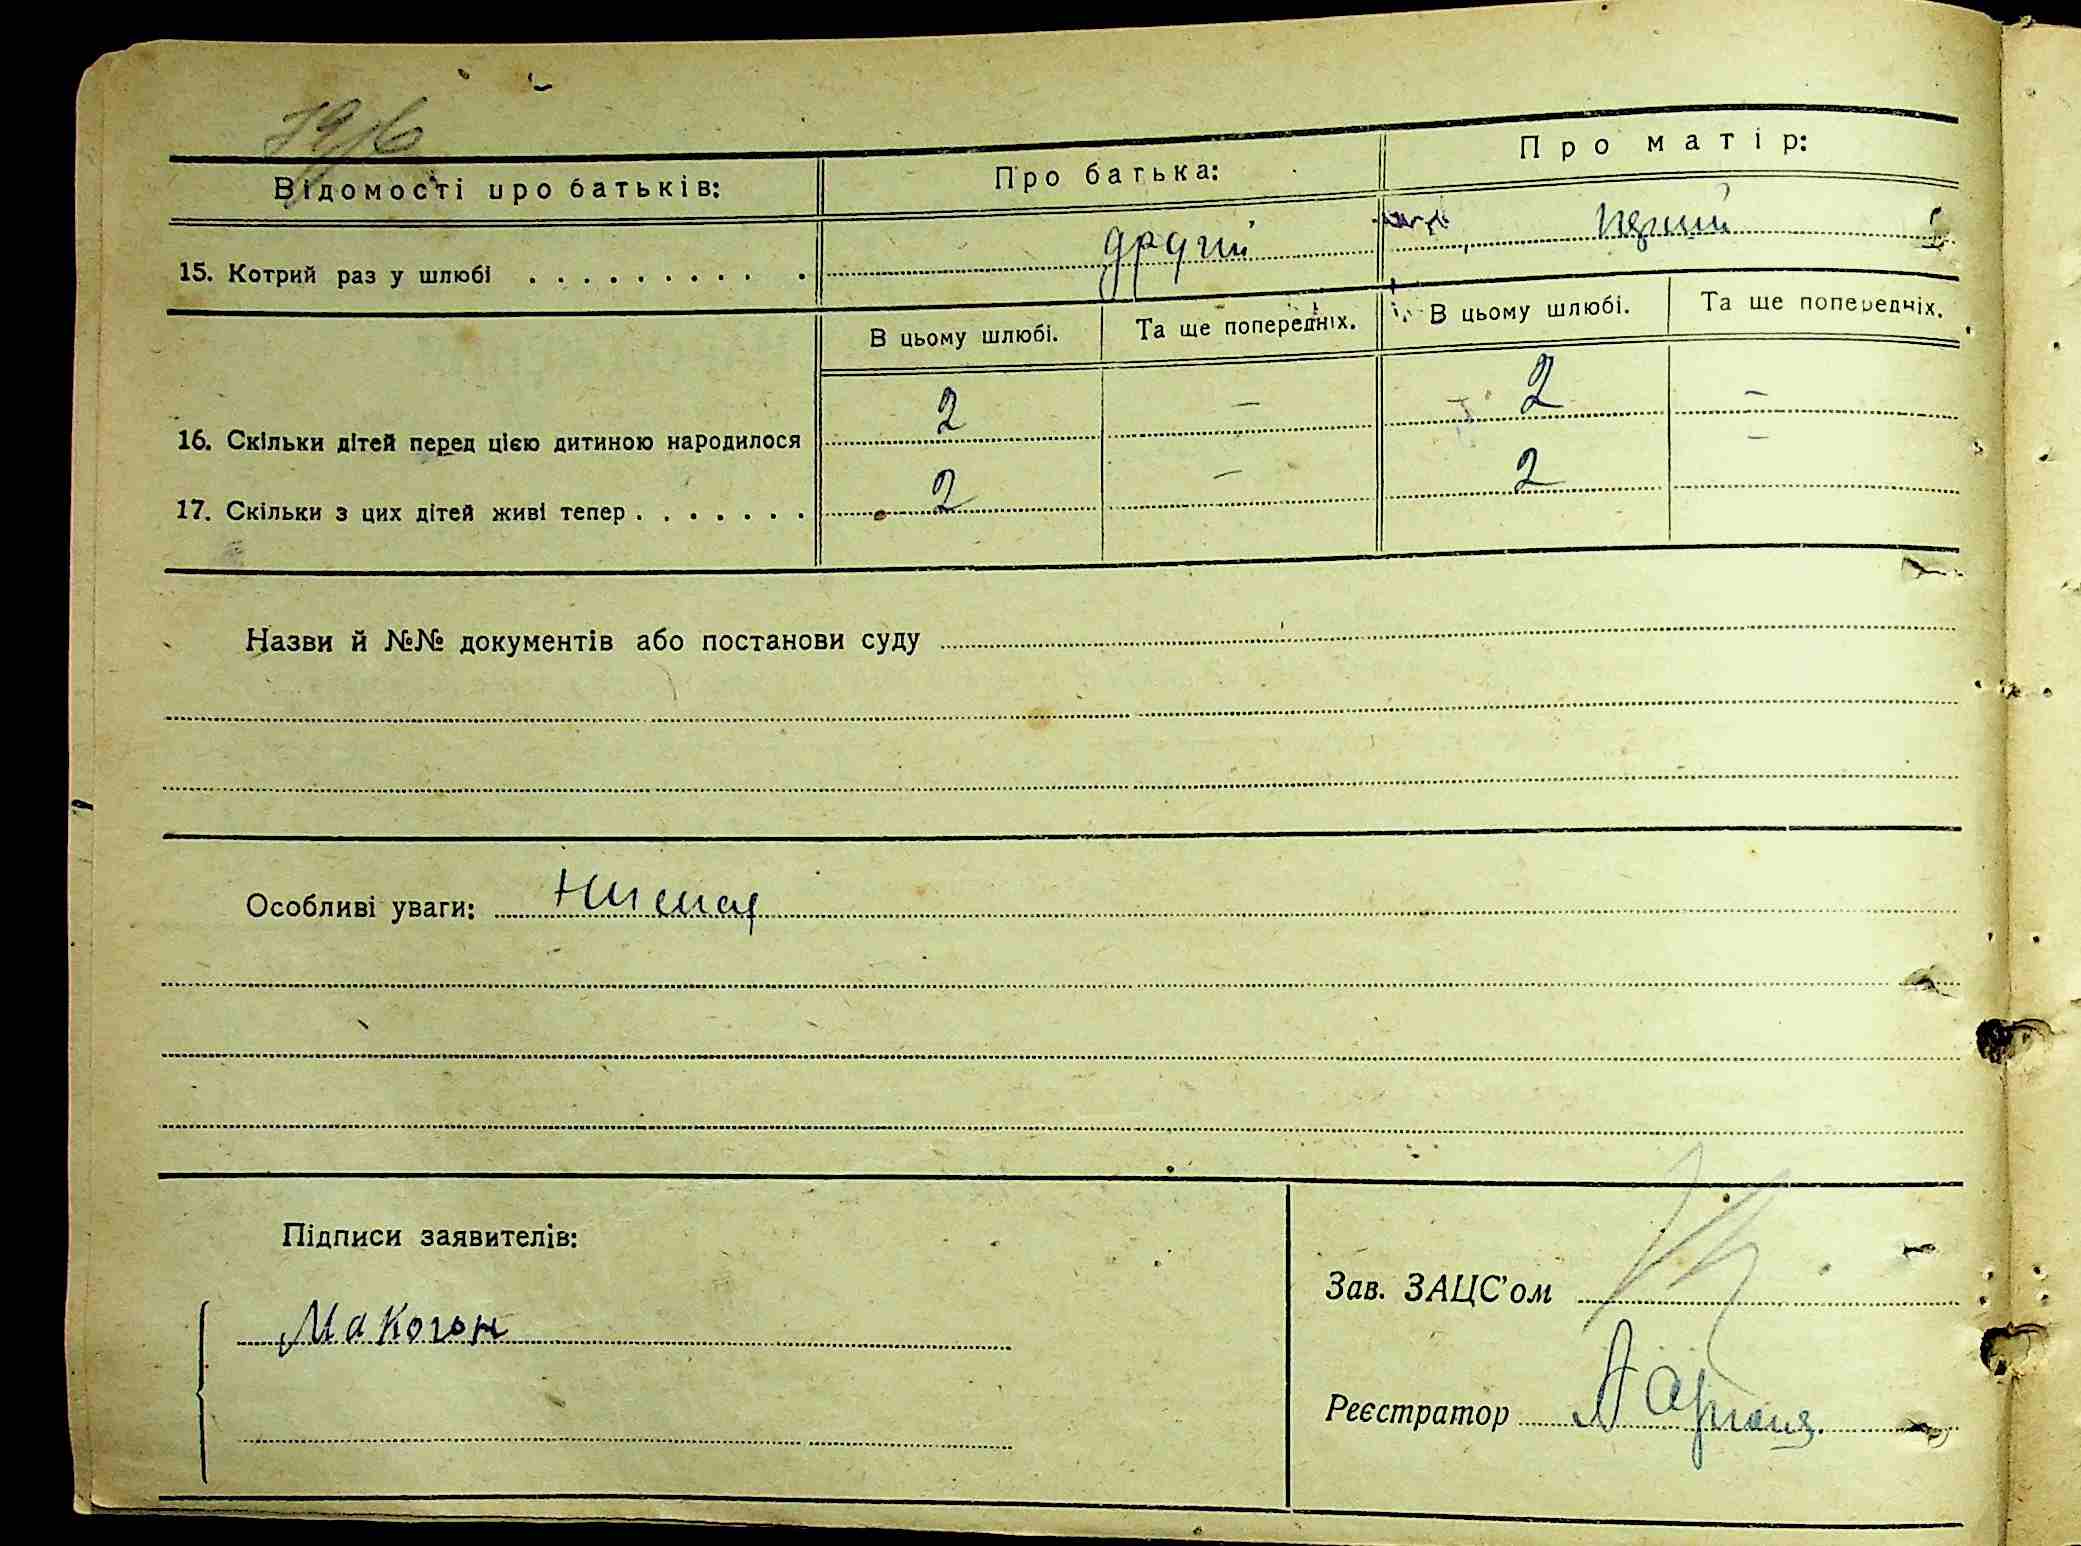 Відомості про батьків: Про батька: Про матір:
15. Котрий раз у шлюбі . . . . . . . . . . другий перший
В цьому шлюбі. Та ще попередніх. В цьому шлюбі. Та ще попередніх.
16. Скільки дітей перед цією дитиною народилося 2 – 2 –
17. Скільки з цих дітей живі тепер . . . . . . . 2 – 2 –
Назви й №№ документів або постанови суду
Особливі уваги: Нимая
Підписи заявителів:
Зав. ЗАЦС'ом
Макогон
Реєстратор